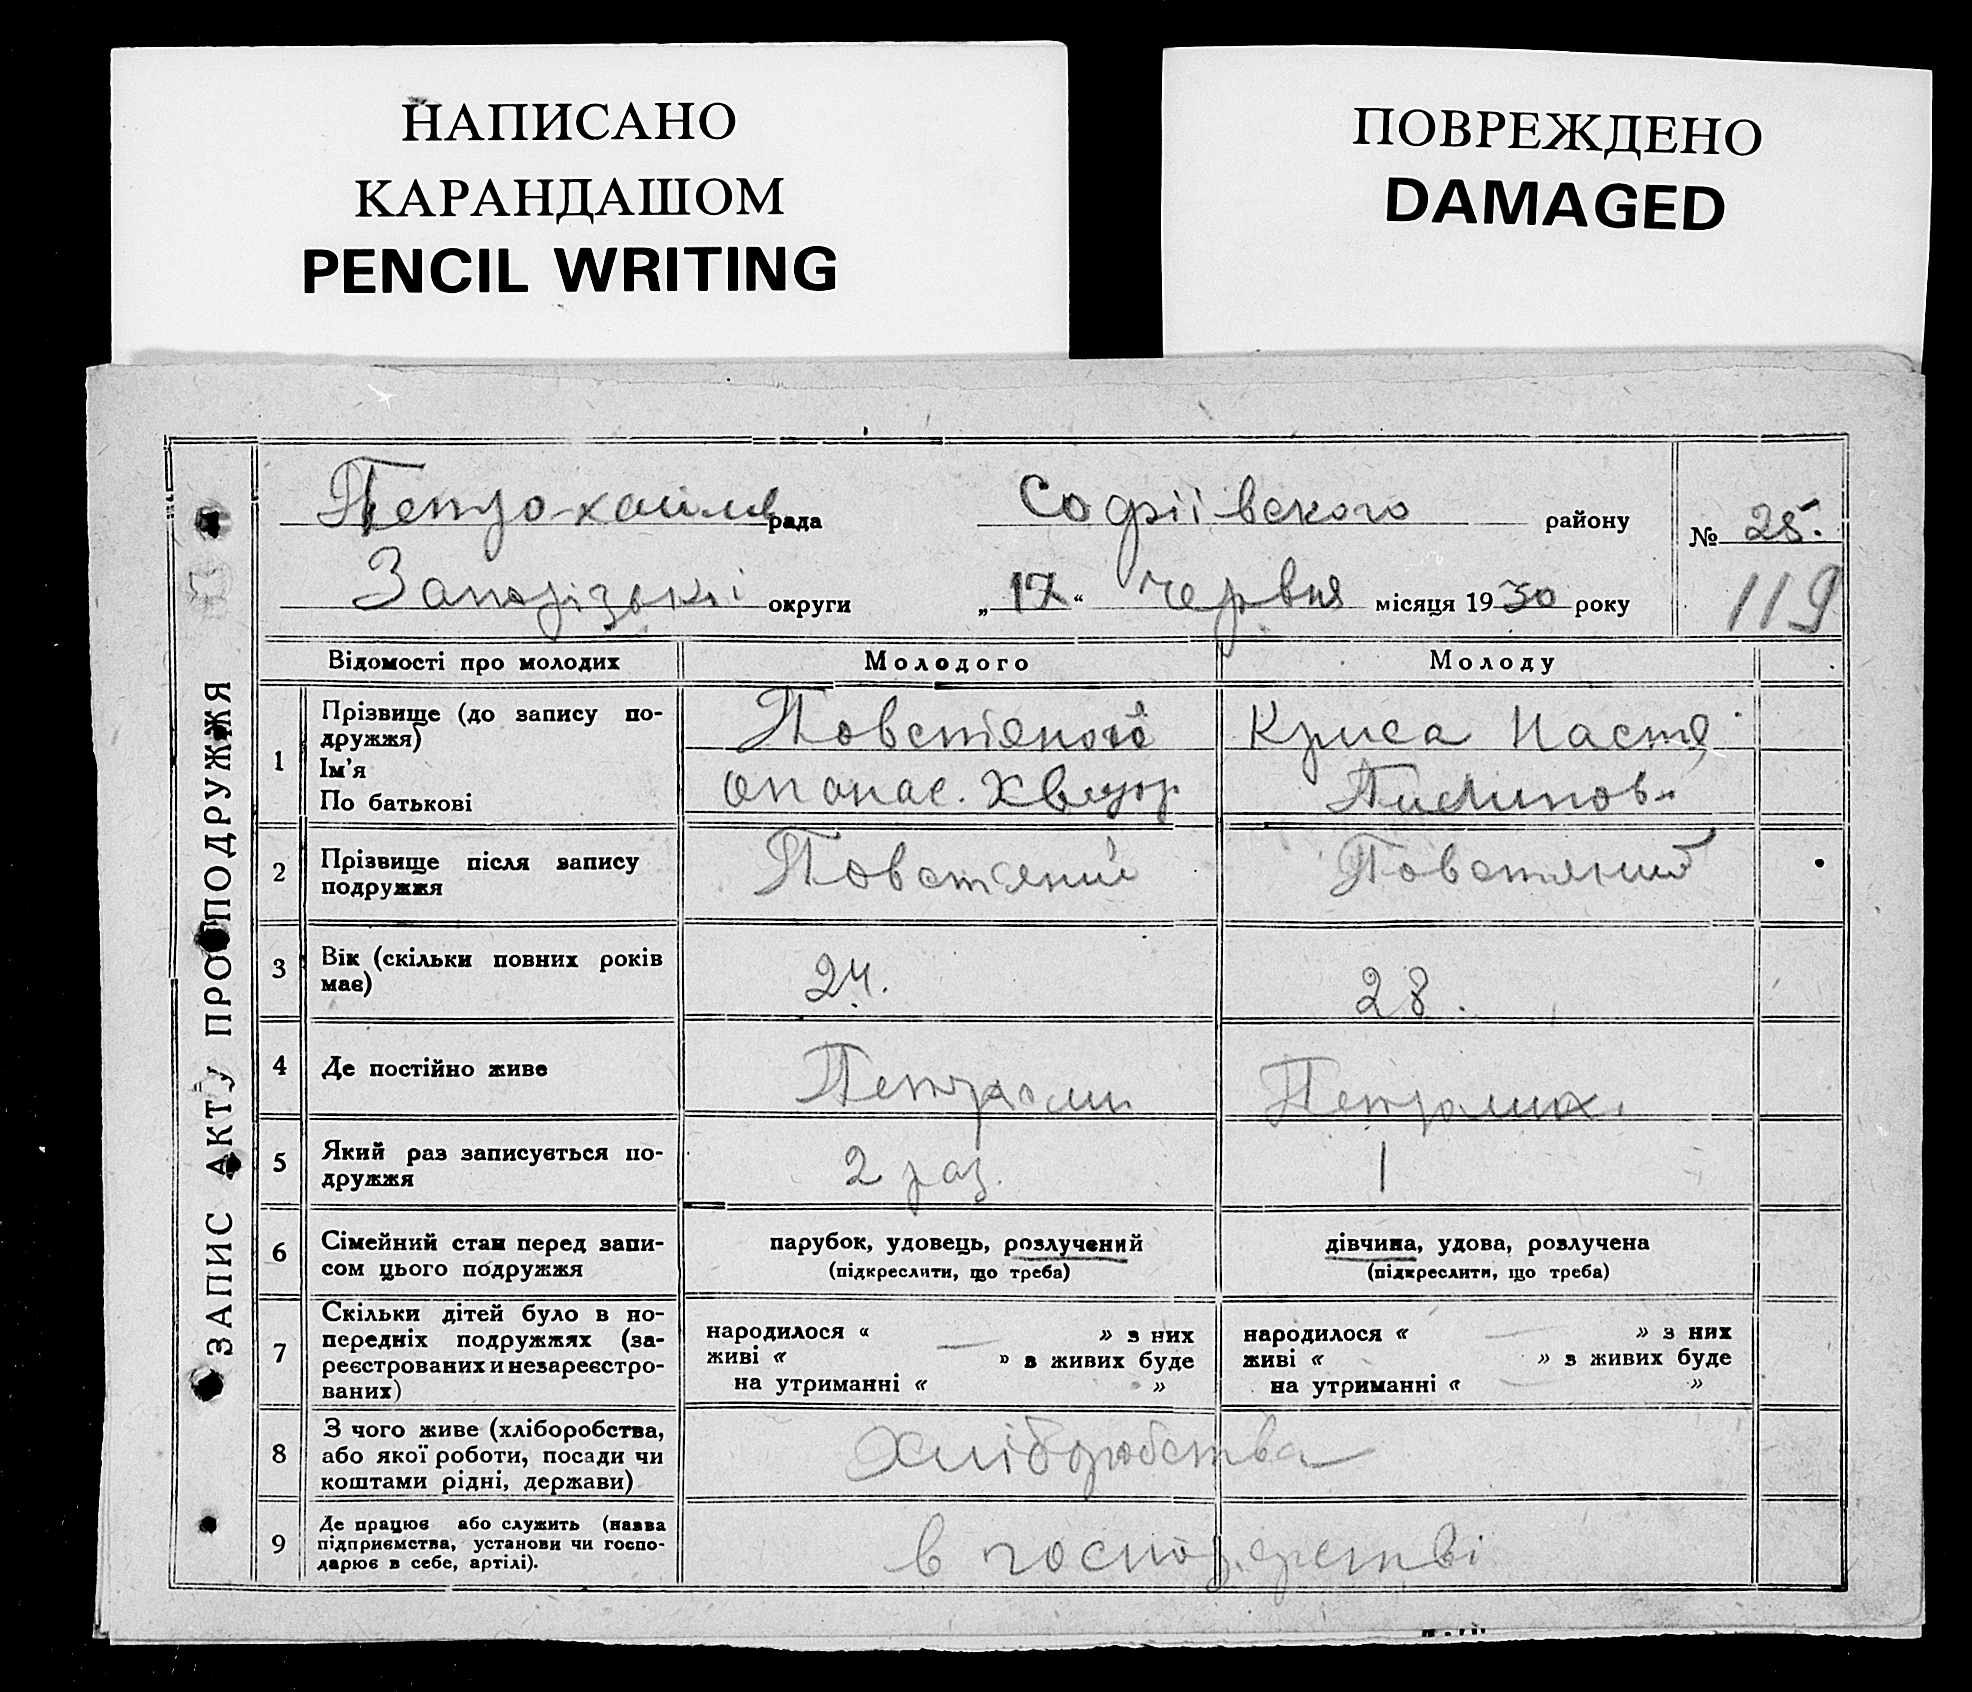 НАПИСАНО
КАРАНДАШОМ
PENCIL WRITING
ПОВРЕЖДЕНО
DAMAGED
ЗАПИС АКТУ ПРО ПОДРУЖЖЯ
рада Софіівского району № 25.
Запорізькі округи „17“ червня місяця 1930 року 119
Відомості про молодих Молодого Молоду
1 Прізвище (до запису по-
дружжя)
Ім'я
По батькові
Повстяной
опанас. Хведор
Криса Настя
2 Прізвище після запису
подружжя
Повстяний
Повстяний
3 Вік (скільки повних років
має)
24.
28.
4 Де постійно живе
5 Який раз записується по-
дружжя
2 раз.
1
6 Сімейний стан перед запи-
сом цього подружжя
парубок, удовець, розлучений
(підкреслити, що треба)
дівчина, удова, розлучена
(підкреслити, що треба)
7 Скільки дітей було в по-
передніх подружжях (за-
реєстрованих и незареєстро-
ваних)
народилося « — » з них
живі « » в живих буде
на утриманні « »
народилося « — » з них
живі « » з живих буде
на утриманні « — »
8 З чого живе (хліборобства,
або якої роботи, посади чи
коштами рідні, держави)
Хліборобства
9 Де працює або служить (назва
підприємства, установи чи госпо-
дарює в себе, артілі).
в господарстві